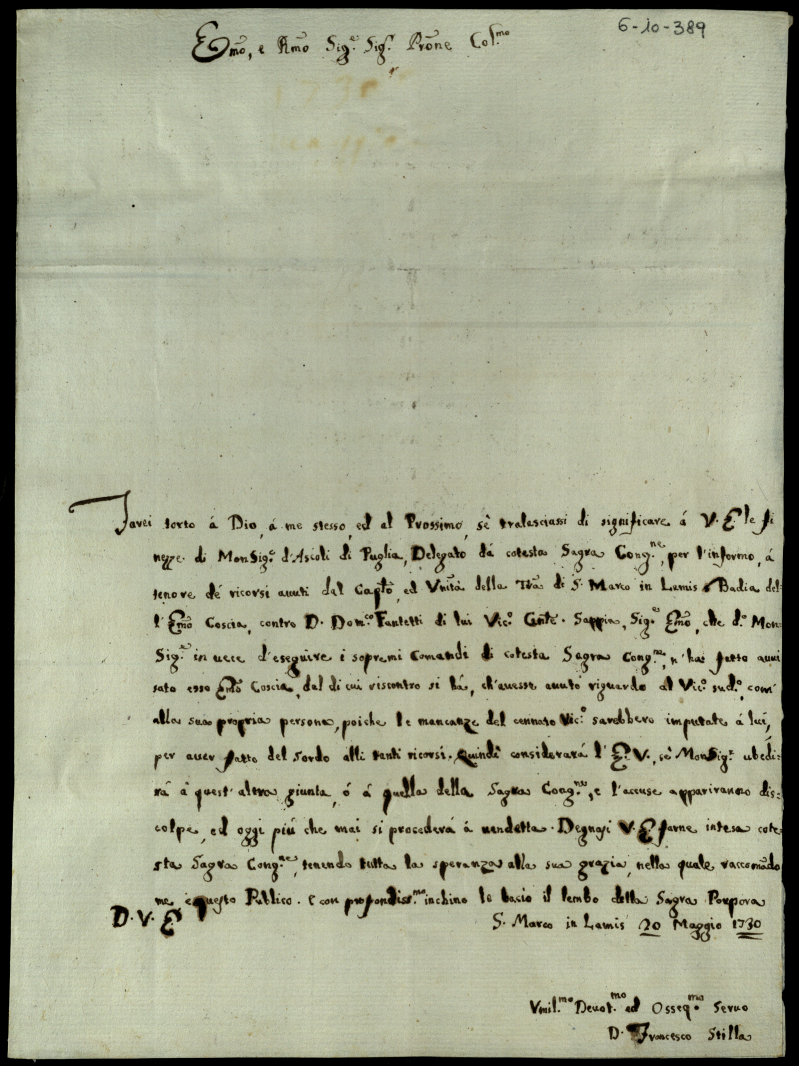 6-10-389
Emo, e Rmo Sig.e Sig.r Prone Col.mo
Farei torto á Dio, á me stesso, ed al Prossimo, sè tralasciassi di significare á V. E le fi
nezze di MonSig.r d'Ascoli di Puglia, Delegato dá cotesta Sagra Cong.ne, per l'informo, á
tenore dé ricorsi avuti dal Capto, ed Vnità della Tra di S. Marco in Lamis Badia del
l'Emo Coscia, contro D. Dom.co Fantetti di lui Vic.o Gnle. Sappia, Sig.e Emo, che d.o Mon
Sig.r in vece d'eseguire i sopremi Comandi di cotesta Sagra Cong.ne, n'ha fatto avvi
sato esso Emo Coscia, dal di cui riscontro si há, ch'avesse avuto riguardo al Vic.o sud.o, com'
alla sua propria persona, poiche le mancanze del cennato Vic.o sarebbero imputate á lui,
per aver fatto del sordo alli tanti ricorsi. Quindi considerará l'E. V., sè MonSig.r ubedi=
rá à quest'altra giunta, ó á quella della Sagra Cong.ne, e l'accuse appariranno dis=
colpe, ed oggi piú che mai si procederá á vendetta. Degnasi V. E farne intesa cote
sta Sagra Cong.ne, tenendo tutta la speranza alla sua grazia, nella quale raccomado
me e questo Publico. E con profondiss.mo inchino le bacio il lembo della Sagra Porpora
D. V. E
S. Marco in Lamis 20 Maggio 1730
Vmil.mo Devot.mo ed Osseq.mo Servo
D. Francesco Stilla